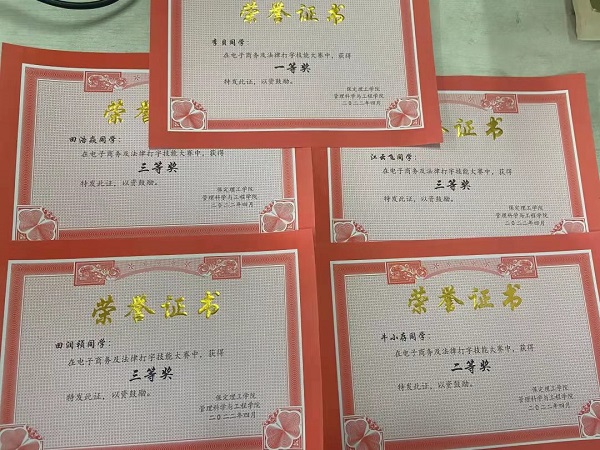 荣誉证书
李贝同学:
在电子商务及法律打字技能大赛中，获得
一等奖
特发此证，以资鼓励。
保定理工学院
管理科学与工程学院
二〇二二年四月
荣
田浩焱同学:
在电子商务及法律打字技能大赛中，获得
三等奖
特发此证，以资鼓励。
保定理工学院
管理科学与工程学院
二〇二二年四月
证书
江云飞同学:
在电子商务及法律打字技能大赛中，获得
三等奖
特发此证，以资鼓励。
保定理工学院
管理科学与工程学院
二〇二二年四月
荣誉证书
田润祯同学:
在电子商务及法律打字技能大赛中，获得
三等奖
特发此证，以资鼓励。
保定理工学院
管理科学与工程学院
二〇二二年四月
荣誉证书
牛小磊同学:
在电子商务及法律打字技能大赛中，获得
二等奖
特发此证，以资鼓励。
保定理工学院
管理科学与工程学院
二〇二二年四月